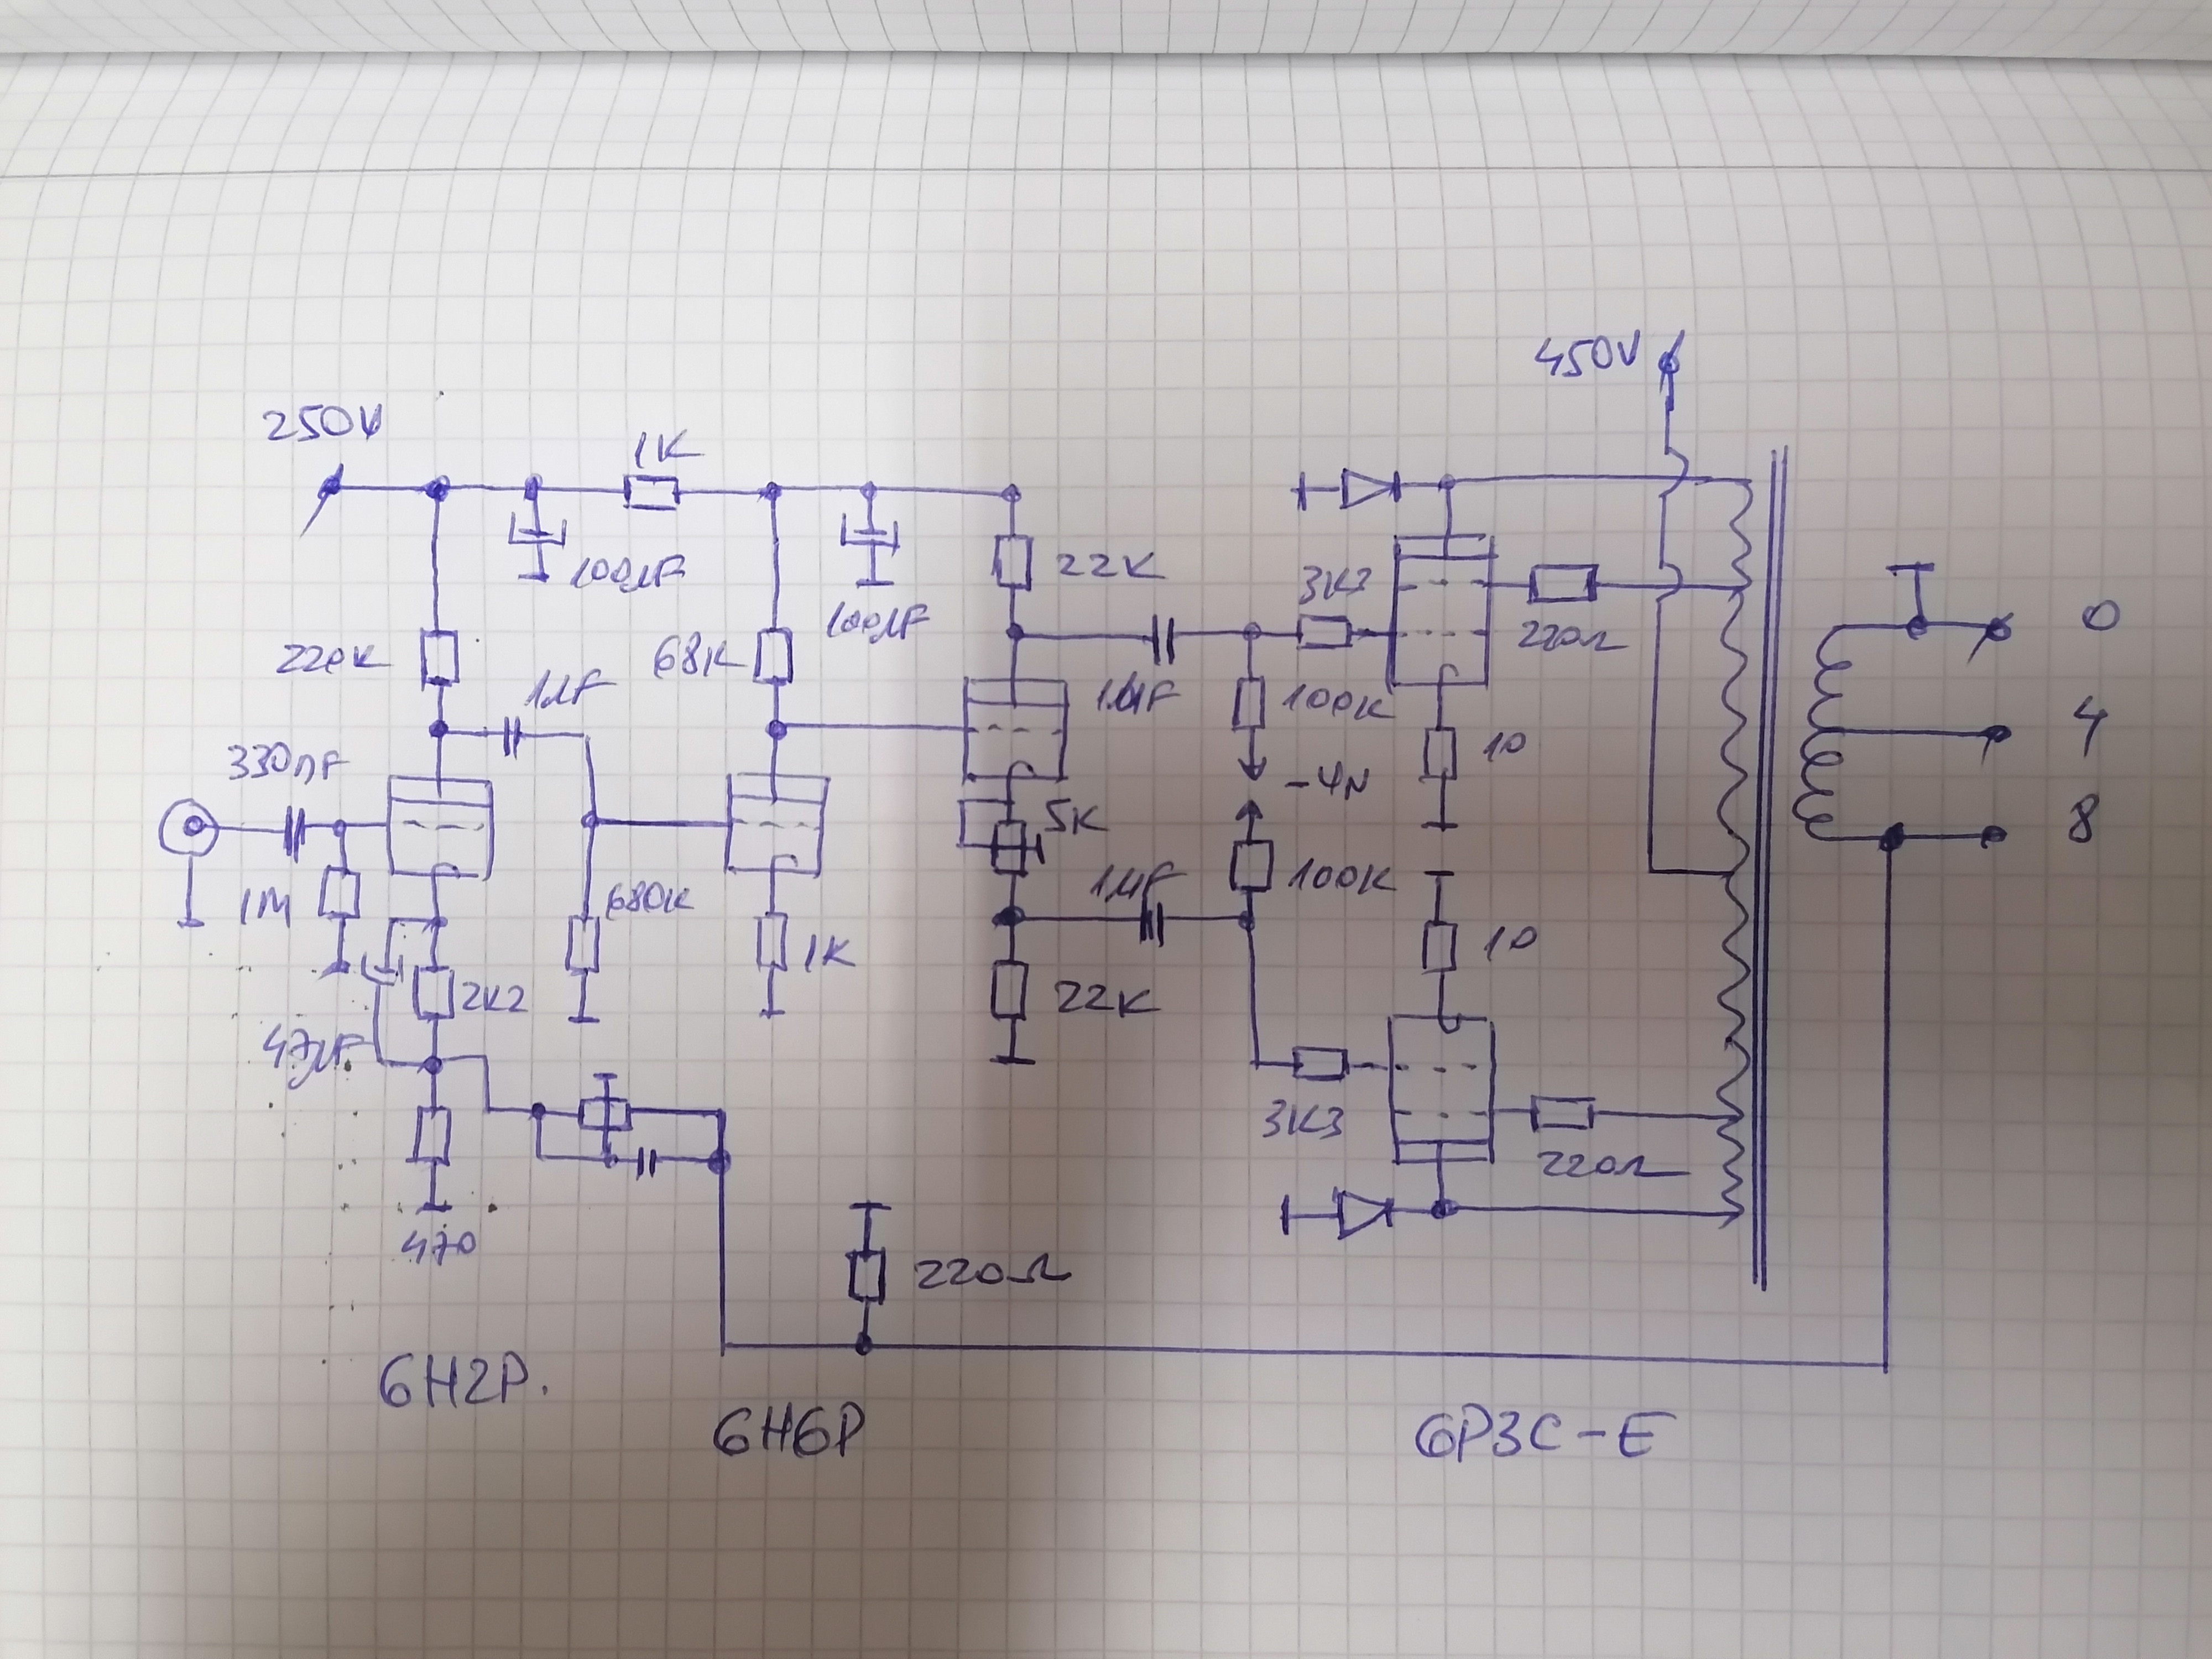 450V
250V
1K
100µF
22K
3K3
100µF
220K
68K
220Ω
0
1µF
1µF
100K
4
330nF
10
5K
8
1µF
100K
1M
680K
10
1K
2K2
22K
47µF
3K3
220Ω
470
220Ω
6H2P.
6H6P
6P3C-E